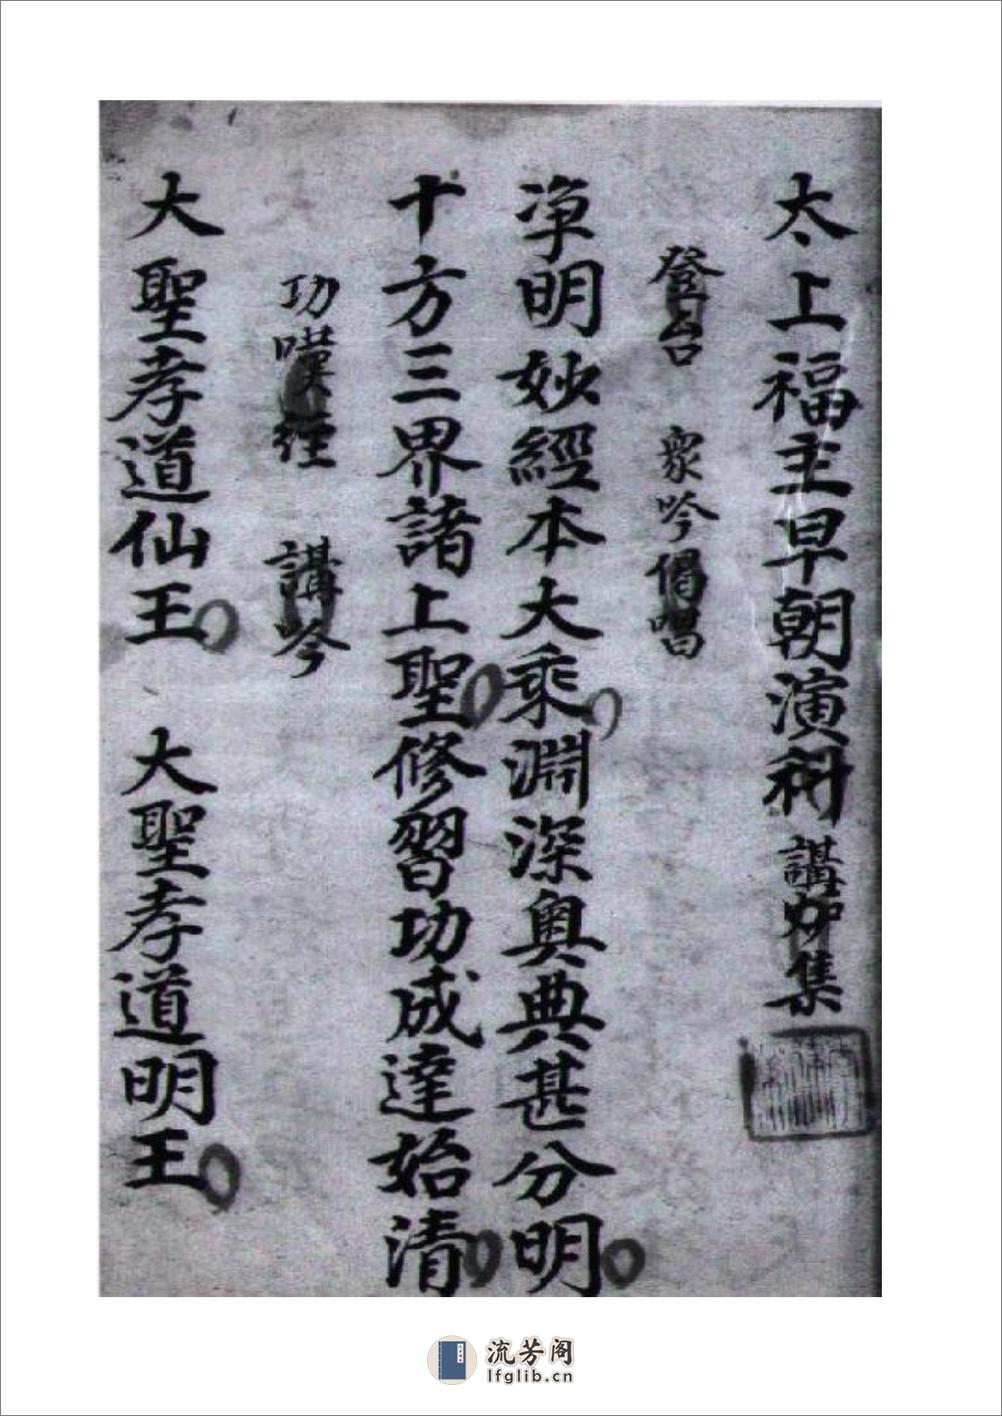 太上福主早朝演科 講妙集
登台 衆吟偈唱
淨明妙經本大乘淵深奧典甚分明
十方三界諸上聖修習功成達始清
功嘆經 講吟
大聖孝道仙王 大聖孝道明王
流芳阁
lfglib.cn